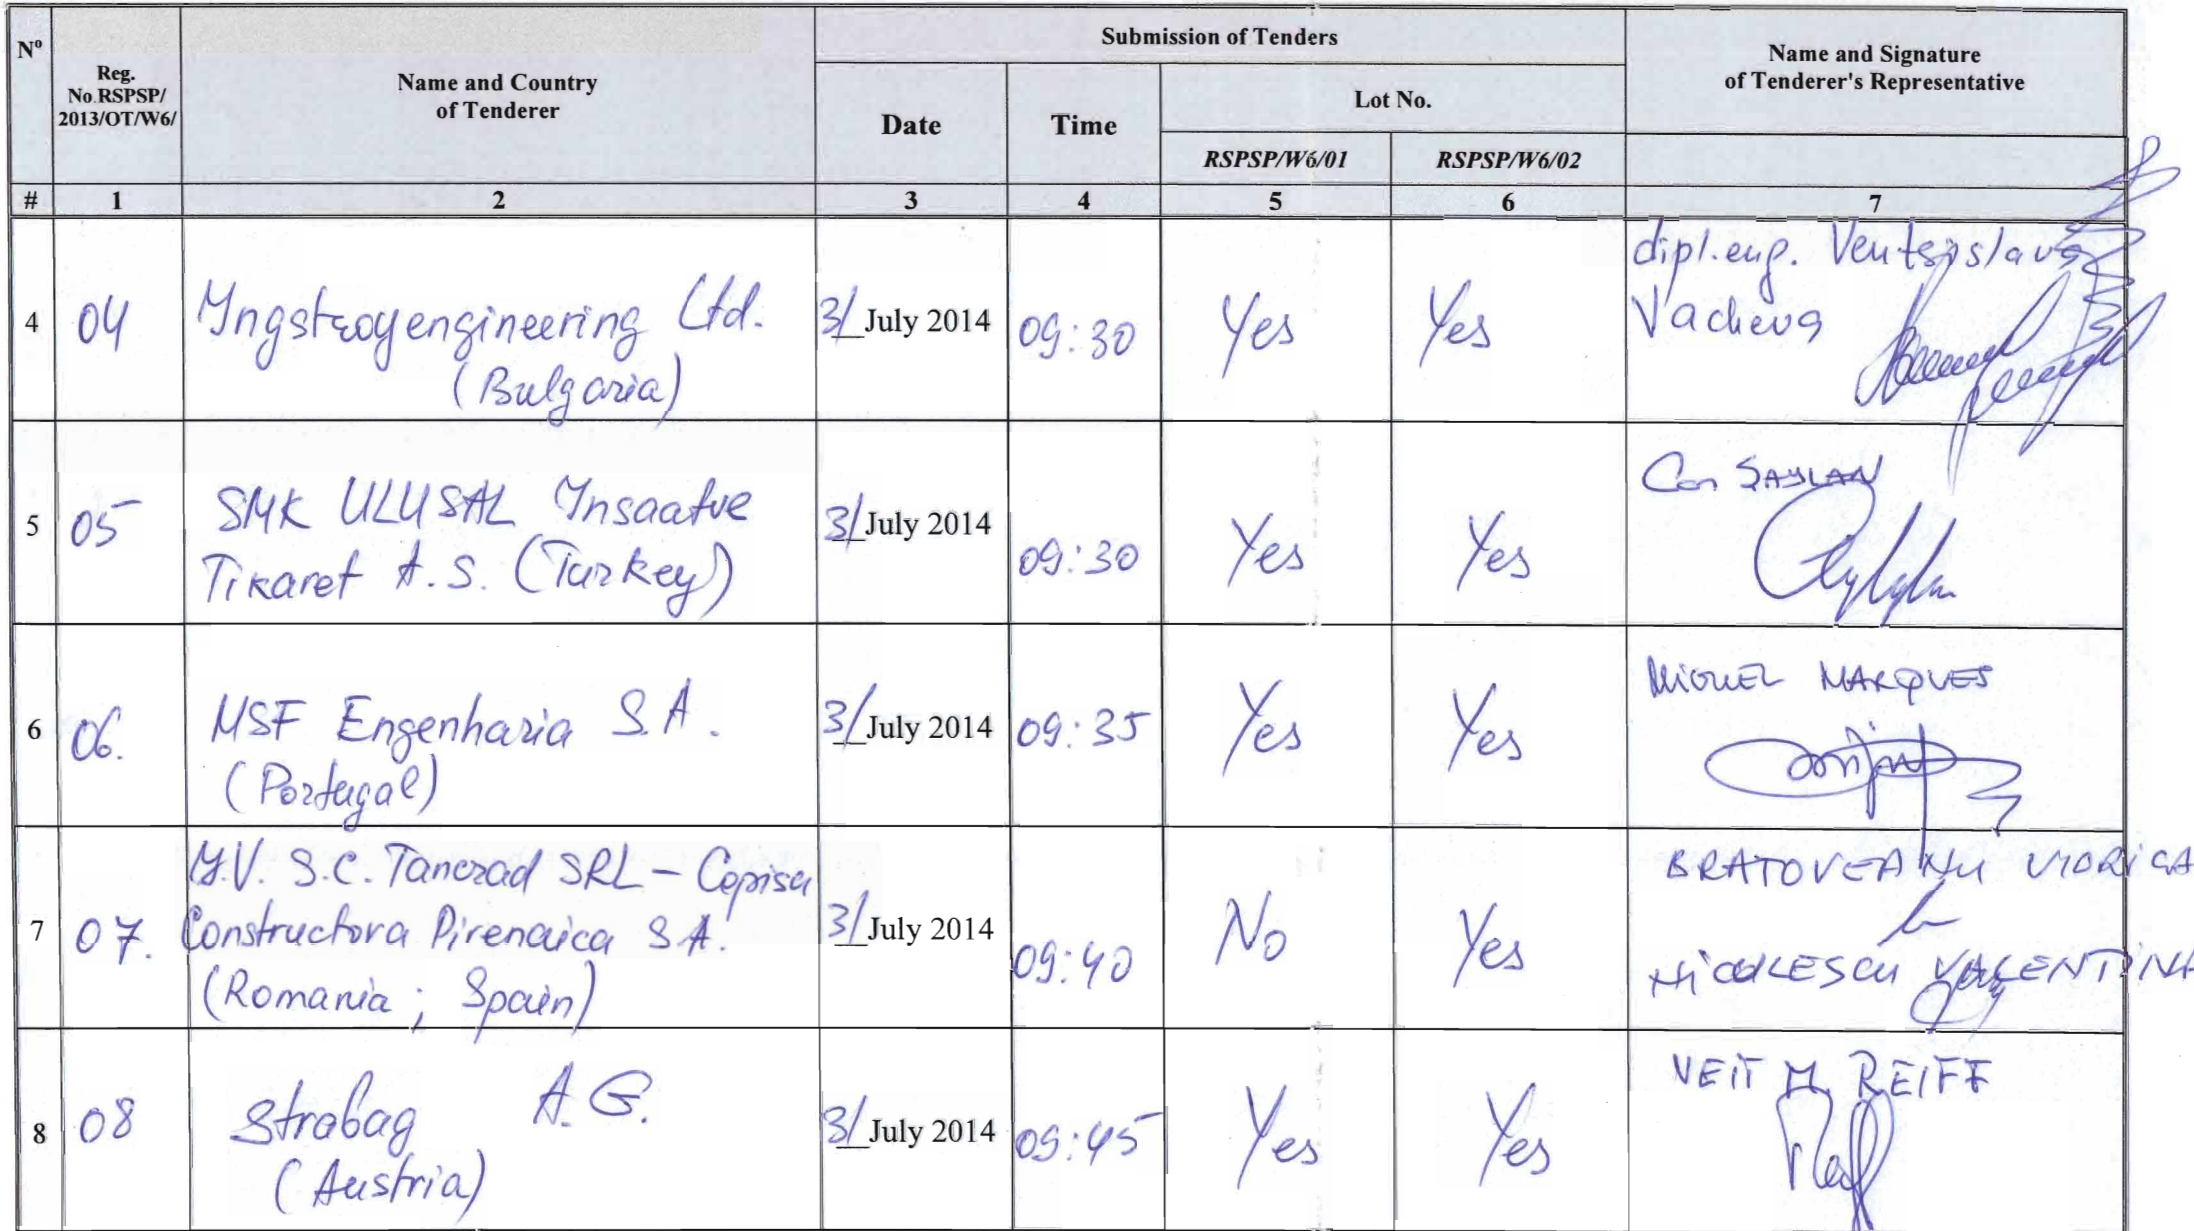 Nº
Reg.
No.RSPSP/
2013/OT/W6/
Name and Country
of Tenderer
Submission of Tenders
Date
Time
Lot No.
RSPSP/W6/01
RSPSP/W6/02
Name and Signature
of Tenderer's Representative
# 1 2 3 4 5 6 7
4 04 Yngstroyengineering Ltd.
(Bulgaria)
3/ July 2014 09:30 Yes Yes
dipl.eng. Ventsislava
Vacheva
5 05 SMK ULUSAL Ynsaatve
Tikaret A.S. (Turkey)
3/ July 2014 09:30 Yes Yes
Can SAYLAN
6 06. MSF Engenharia S.A.
(Portugal)
3/ July 2014 09:35 Yes Yes
MIGUEL MARQUES
7 07. J.V. S.C. Tancrad SRL – Copisa
Constructora Pirenaica S.A.
(Romania ; Spain)
3/ July 2014 09:40 No Yes
BRATOVEANU VIORICA
NICULESCU VALENTINA
8 08 Strabag A.G.
(Austria)
3/ July 2014 09:45 Yes Yes
VEIT M. REIFF